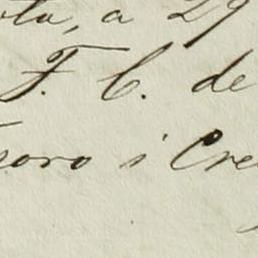 ota, a 29
F. C. de
soro i Cre